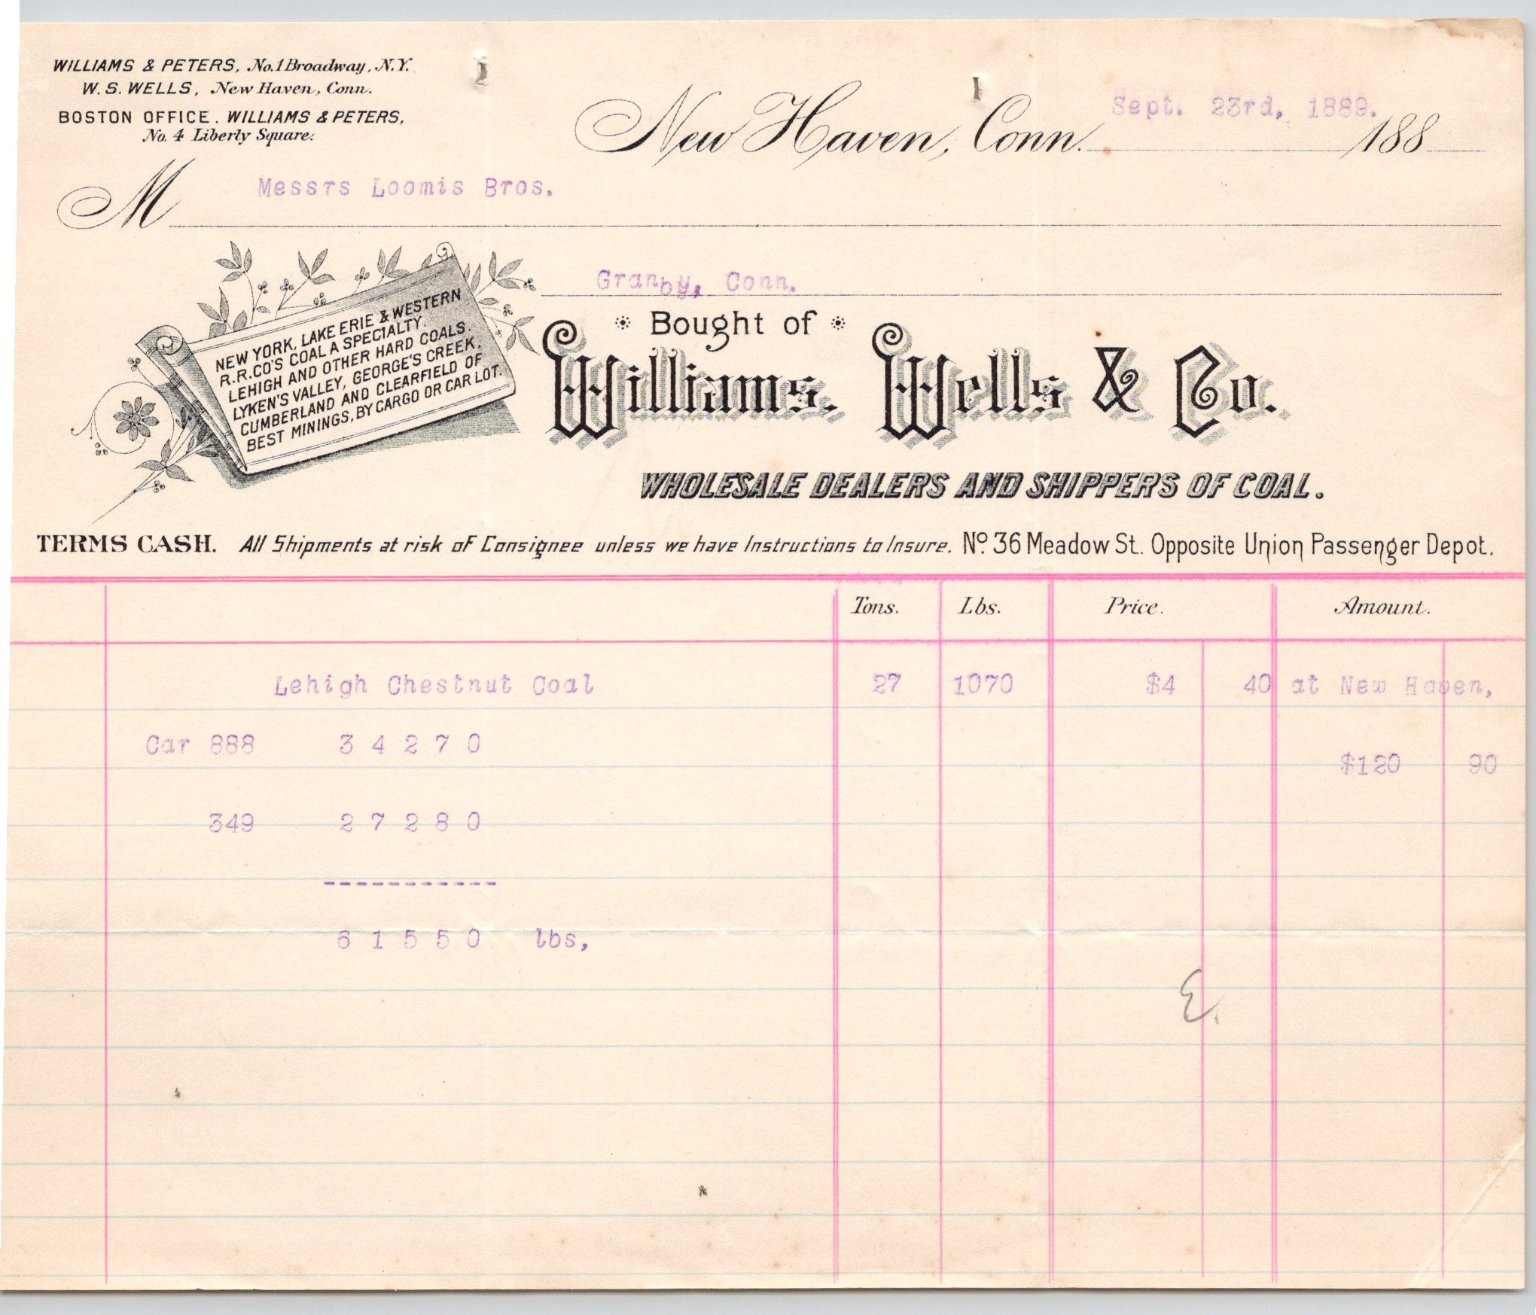 WILLIAMS & PETERS, No. 1 Broadway, N.Y.
W. S. WELLS, New Haven, Conn.
BOSTON OFFICE. WILLIAMS & PETERS,
No. 4 Liberty Square.
New Haven, Conn. Sept. 23rd, 1889. 188
M Messrs Loomis Bros.
Granby, Conn.
NEW YORK, LAKE ERIE & WESTERN
R.R.CO'S COAL A SPECIALTY.
LEHIGH AND OTHER HARD COALS.
LYKEN'S VALLEY, GEORGE'S CREEK,
CUMBERLAND AND CLEARFIELD OF
BEST MININGS, BY CARGO OR CAR LOT.
Bought of
Williams, Wells & Co.
WHOLESALE DEALERS AND SHIPPERS OF COAL.
TERMS CASH. All Shipments at risk of Consignee unless we have Instructions to Insure. No. 36 Meadow St. Opposite Union Passenger Depot.
Tons. Lbs. Price. Amount.
Lehigh Chestnut Coal 27 1070 $4 40 at New Haven,
Car 888 3 4 2 7 0
$120 90
349 2 7 2 8 0
-----------
6 1 5 5 0 lbs,
E.